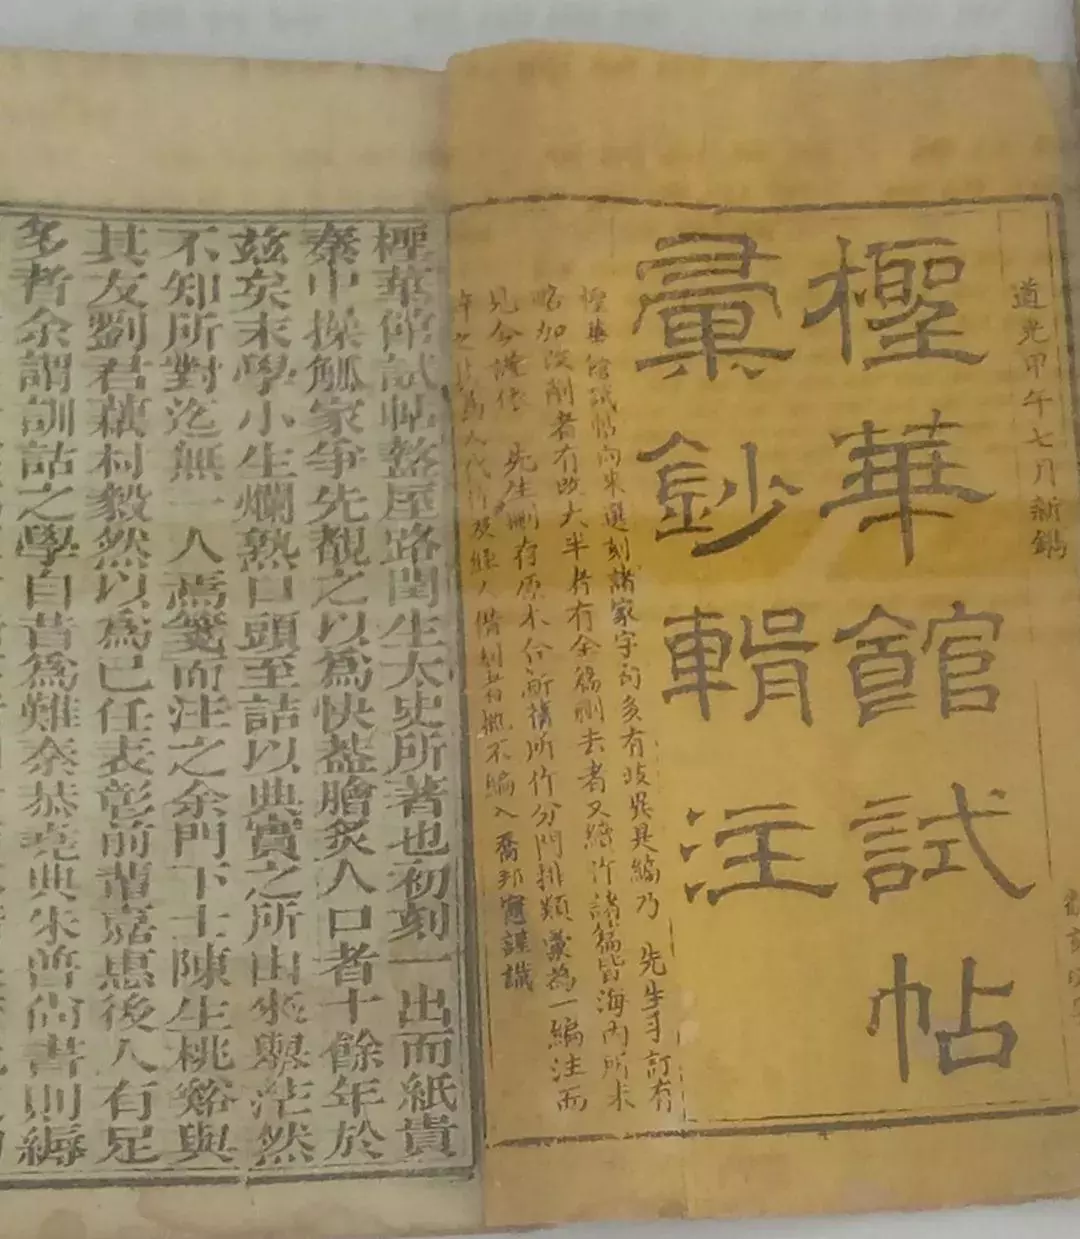 道光甲午七月新鐫
檉華館試帖
彙鈔輯注
檉華館試帖向來選刻諸家字句多有歧異是編乃 先生手訂有
略加刪削者有改大半者有全篇刪去者又續行諸篇皆海內所未
見今謹依 先生刪存原本合所舊所作分門排類彙為一編注而
為人代 概不編入 喬邦憲謹識
檉華館試帖盩厔路閏生太史所著也初刻一出而紙貴
秦中操觚家爭先覩之以為快葢膾炙人口者十餘年於
茲矣末學小生爛熟口頭至詰以典實之所由來輿茫然
不知所對迄無一人為箋而注之余門下士陳生桃谿與
其友劉君藕村毅然以為己任表彰前輩嘉惠後人有足
多者余謂訓詁之學自昔為難秦恭堯典朱普尚書則縟